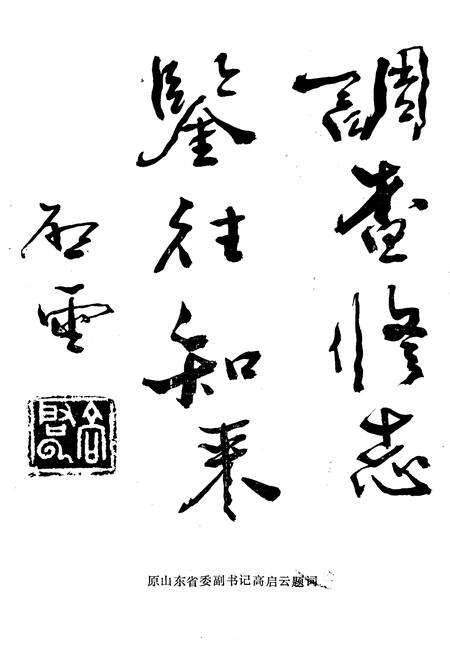 調查修志
鑒往知来
启雲
高启云
原山东省委副书记高启云题词